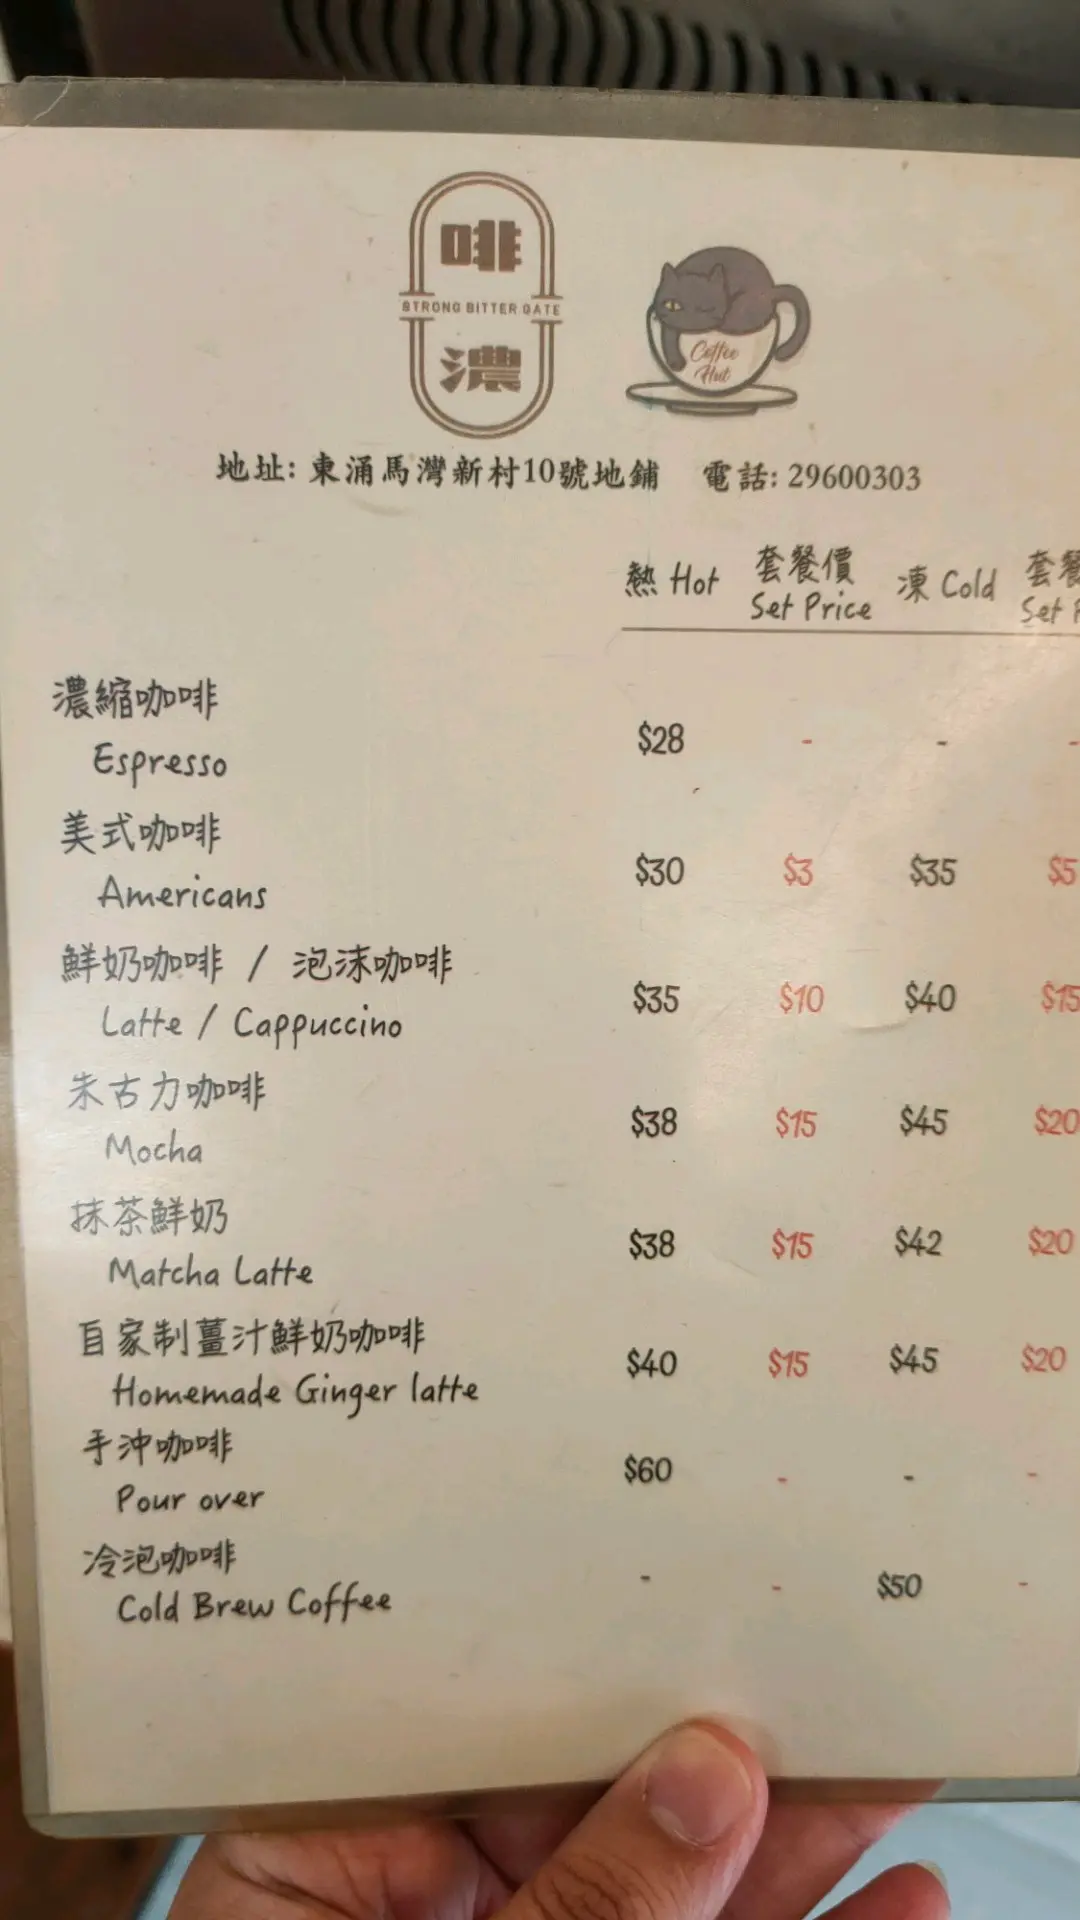 啡
STRONG BITTER GATE
濃
Coffee
Hut
地址: 東涌馬灣新村10號地鋪 電話: 29600303
熱 Hot 套餐價 凍 Cold 套餐
Set Price Set P
濃縮咖啡
Espresso $28 - - -
美式咖啡
Americans $30 $3 $35 $5
鮮奶咖啡 / 泡沫咖啡
Latte / Cappuccino $35 $10 $40 $15
朱古力咖啡
Mocha $38 $15 $45 $20
抹茶鮮奶
Matcha Latte $38 $15 $42 $20
自家制薑汁鮮奶咖啡
Homemade Ginger latte $40 $15 $45 $20
手沖咖啡
Pour over $60 - - -
冷泡咖啡
Cold Brew Coffee - - $50 -